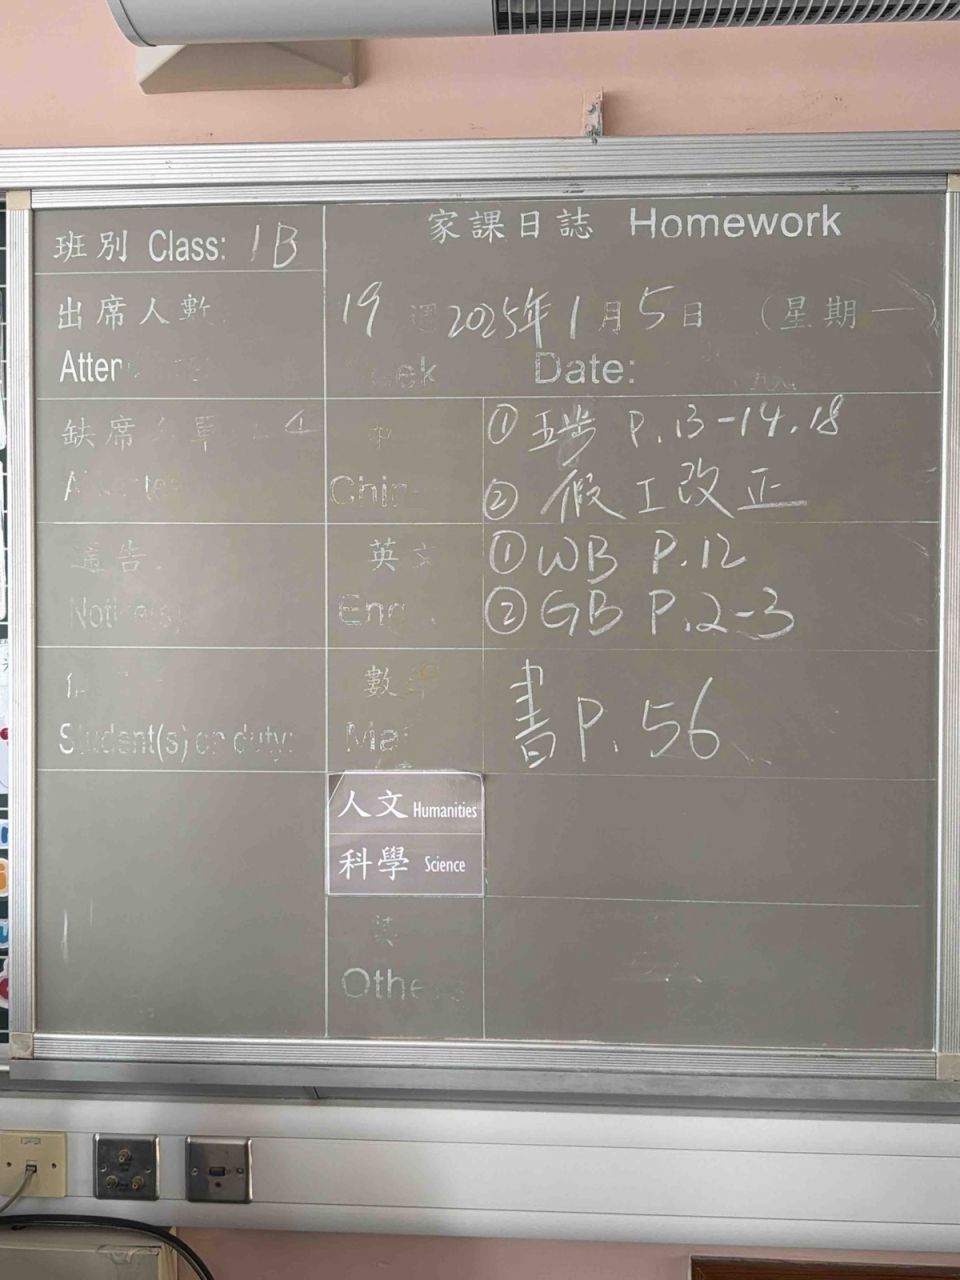 班別 Class: 1B
家課日誌 Homework
出席人數
Atten
19 週 2025年1月5日 (星期一)
eek Date:
缺席 單
Chin
① 五步 P.13-14.18
② 假工改正
通告
Notice(s)
英文
Eng
① WB P.12
② GB P.2-3
Student(s) on duty:
數學
Mat
書 P.56
人文 Humanities
科學 Science
Others